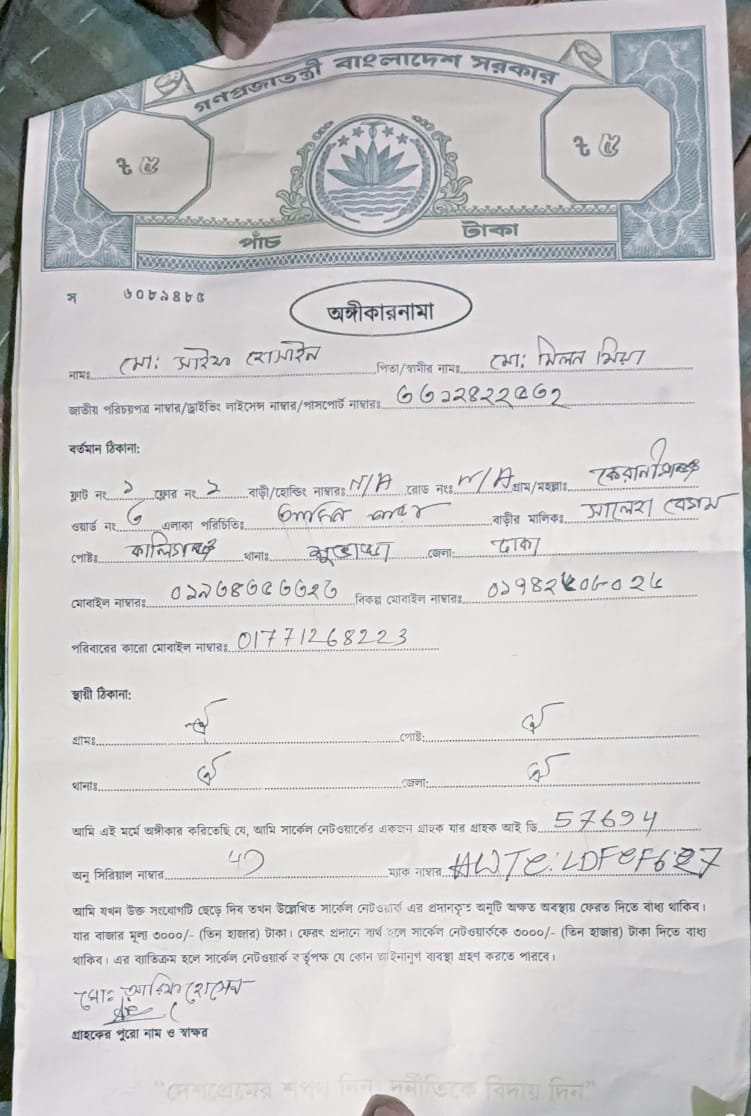 গণপ্রজাতন্ত্রী বাংলাদেশ সরকার
৳ ৫
৳ ৫
পাঁচ টাকা
স ৬০৮৯৪৮৫
অঙ্গীকারনামা
নামঃ মো: আরিফ হোসাইন পিতা/স্বামীর নামঃ মো: মিলন মিয়া
জাতীয় পরিচয়পত্র নাম্বার/ড্রাইভিং লাইসেন্স নাম্বার/পাসপোর্ট নাম্বারঃ
বর্তমান ঠিকানা:
ফ্লাট নং ২ ফ্লোর নং ২ বাড়ী/হোল্ডিং নাম্বারঃ N/A রোড নংঃ N/A গ্রাম/মহল্লাঃ কেরানীগঞ্জ
ওয়ার্ড নং ৩ এলাকা পরিচিতিঃ বাড়ীর মালিকঃ সালেহা বেগম
পোষ্টঃ কালিগঞ্জ থানাঃ জেলা: ঢাকা
মোবাইল নাম্বারঃ বিকল্প মোবাইল নাম্বারঃ
পরিবারের কারো মোবাইল নাম্বারঃ 01771268223
স্থায়ী ঠিকানা:
গ্রামঃ ঐ পোষ্ট: ঐ
থানাঃ ঐ জেলা: ঐ
আমি এই মর্মে অঙ্গীকার করিতেছি যে, আমি সার্কেল নেটওয়ার্কের একজন গ্রাহক যার গ্রাহক আই ডি 57694
অনু সিরিয়াল নাম্বার ম্যাক নাম্বার
আমি যখন উক্ত সংযোগটি ছেড়ে দিব তখন উল্লেখিত সার্কেল নেটওয়ার্ক এর প্রদানকৃত অনুটি অক্ষত অবস্থায় ফেরত দিতে বাধ্য থাকিব।
যার বাজার মূল্য ৩০০০/- (তিন হাজার) টাকা। ফেরৎ প্রদানে ব্যর্থ হলে সার্কেল নেটওয়ার্ককে ৩০০০/- (তিন হাজার) টাকা দিতে বাধ্য
থাকিব। এর ব্যতিক্রম হলে সার্কেল নেটওয়ার্ক কর্তৃপক্ষ যে কোন আইনানুগ ব্যবস্থা গ্রহণ করতে পারবে।
মো: আরিফ হোসেন
গ্রাহকের পুরো নাম ও স্বাক্ষর
"দেশপ্রেমের শপথ নিন, দুর্নীতিকে বিদায় দিন"